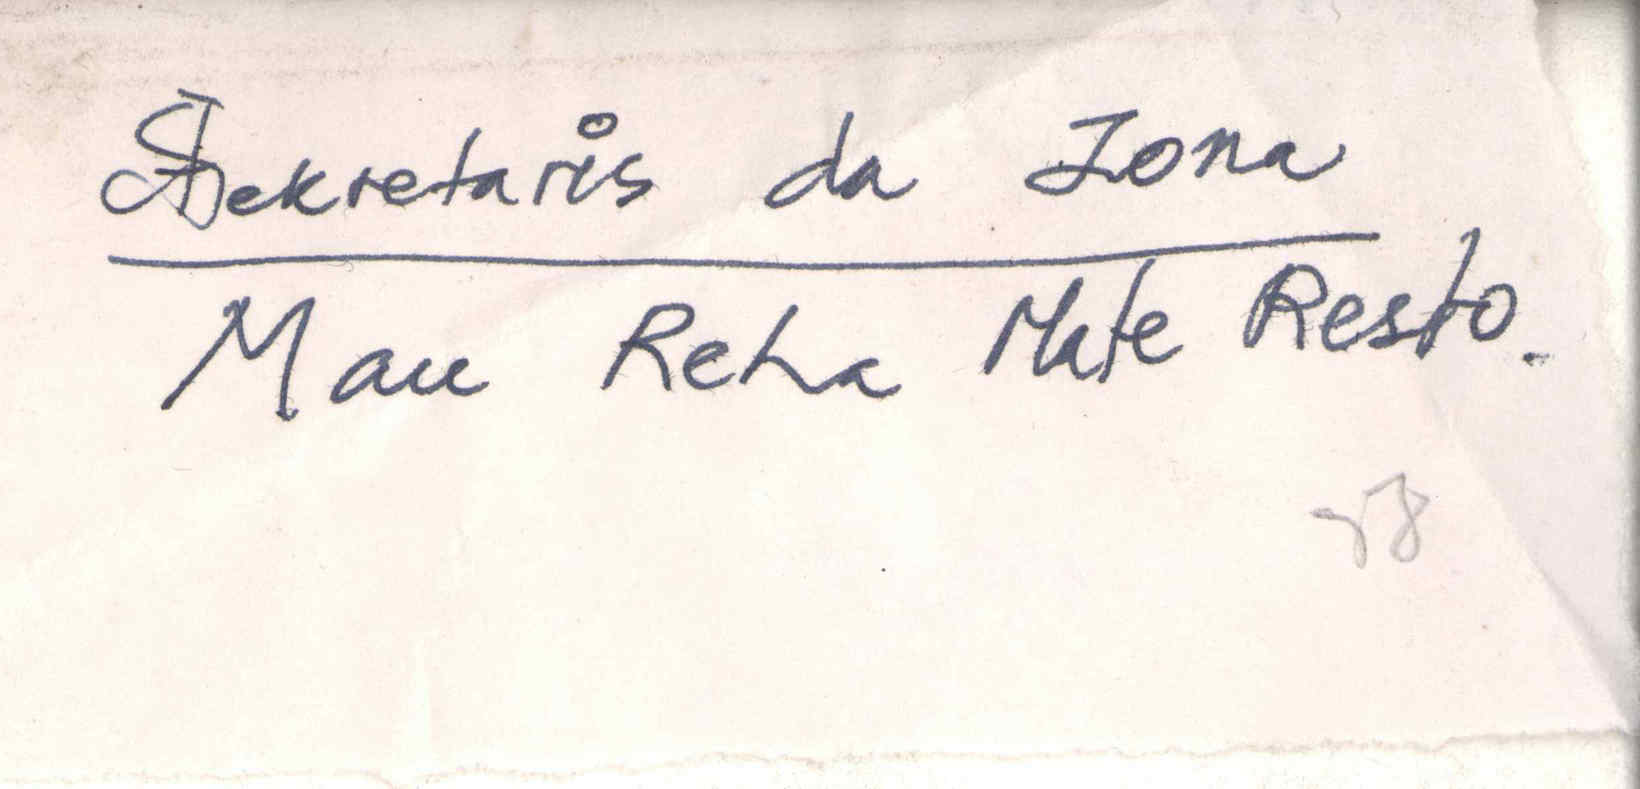 Sekretaris da Zona
Mau Reha Mate Resto.